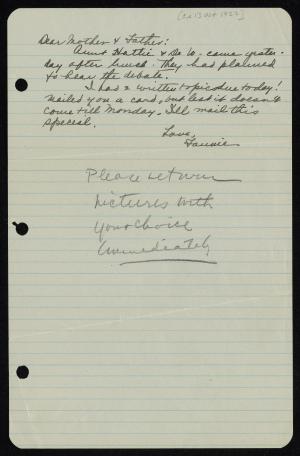 Dear Mother & Father:
Aunt Hattie & Da W. came yester-
day after lunch. They had planned
to hear the debate.
I had 2 written topics due today!
Mailed you a card, but lest it doesn't
come till Monday, I'll mail this
special.
Love,
Fannie
Please return
pictures with
your choice
immediately